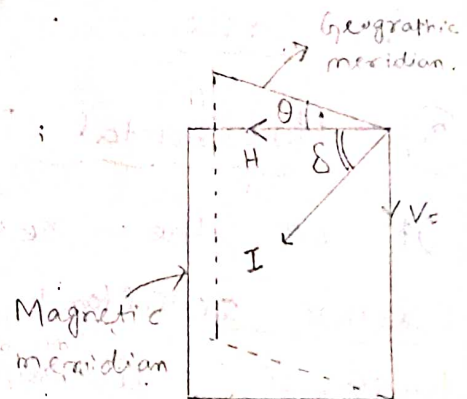 Geographic
meridian.
θ
H
δ
V=
I
Magnetic
meridian